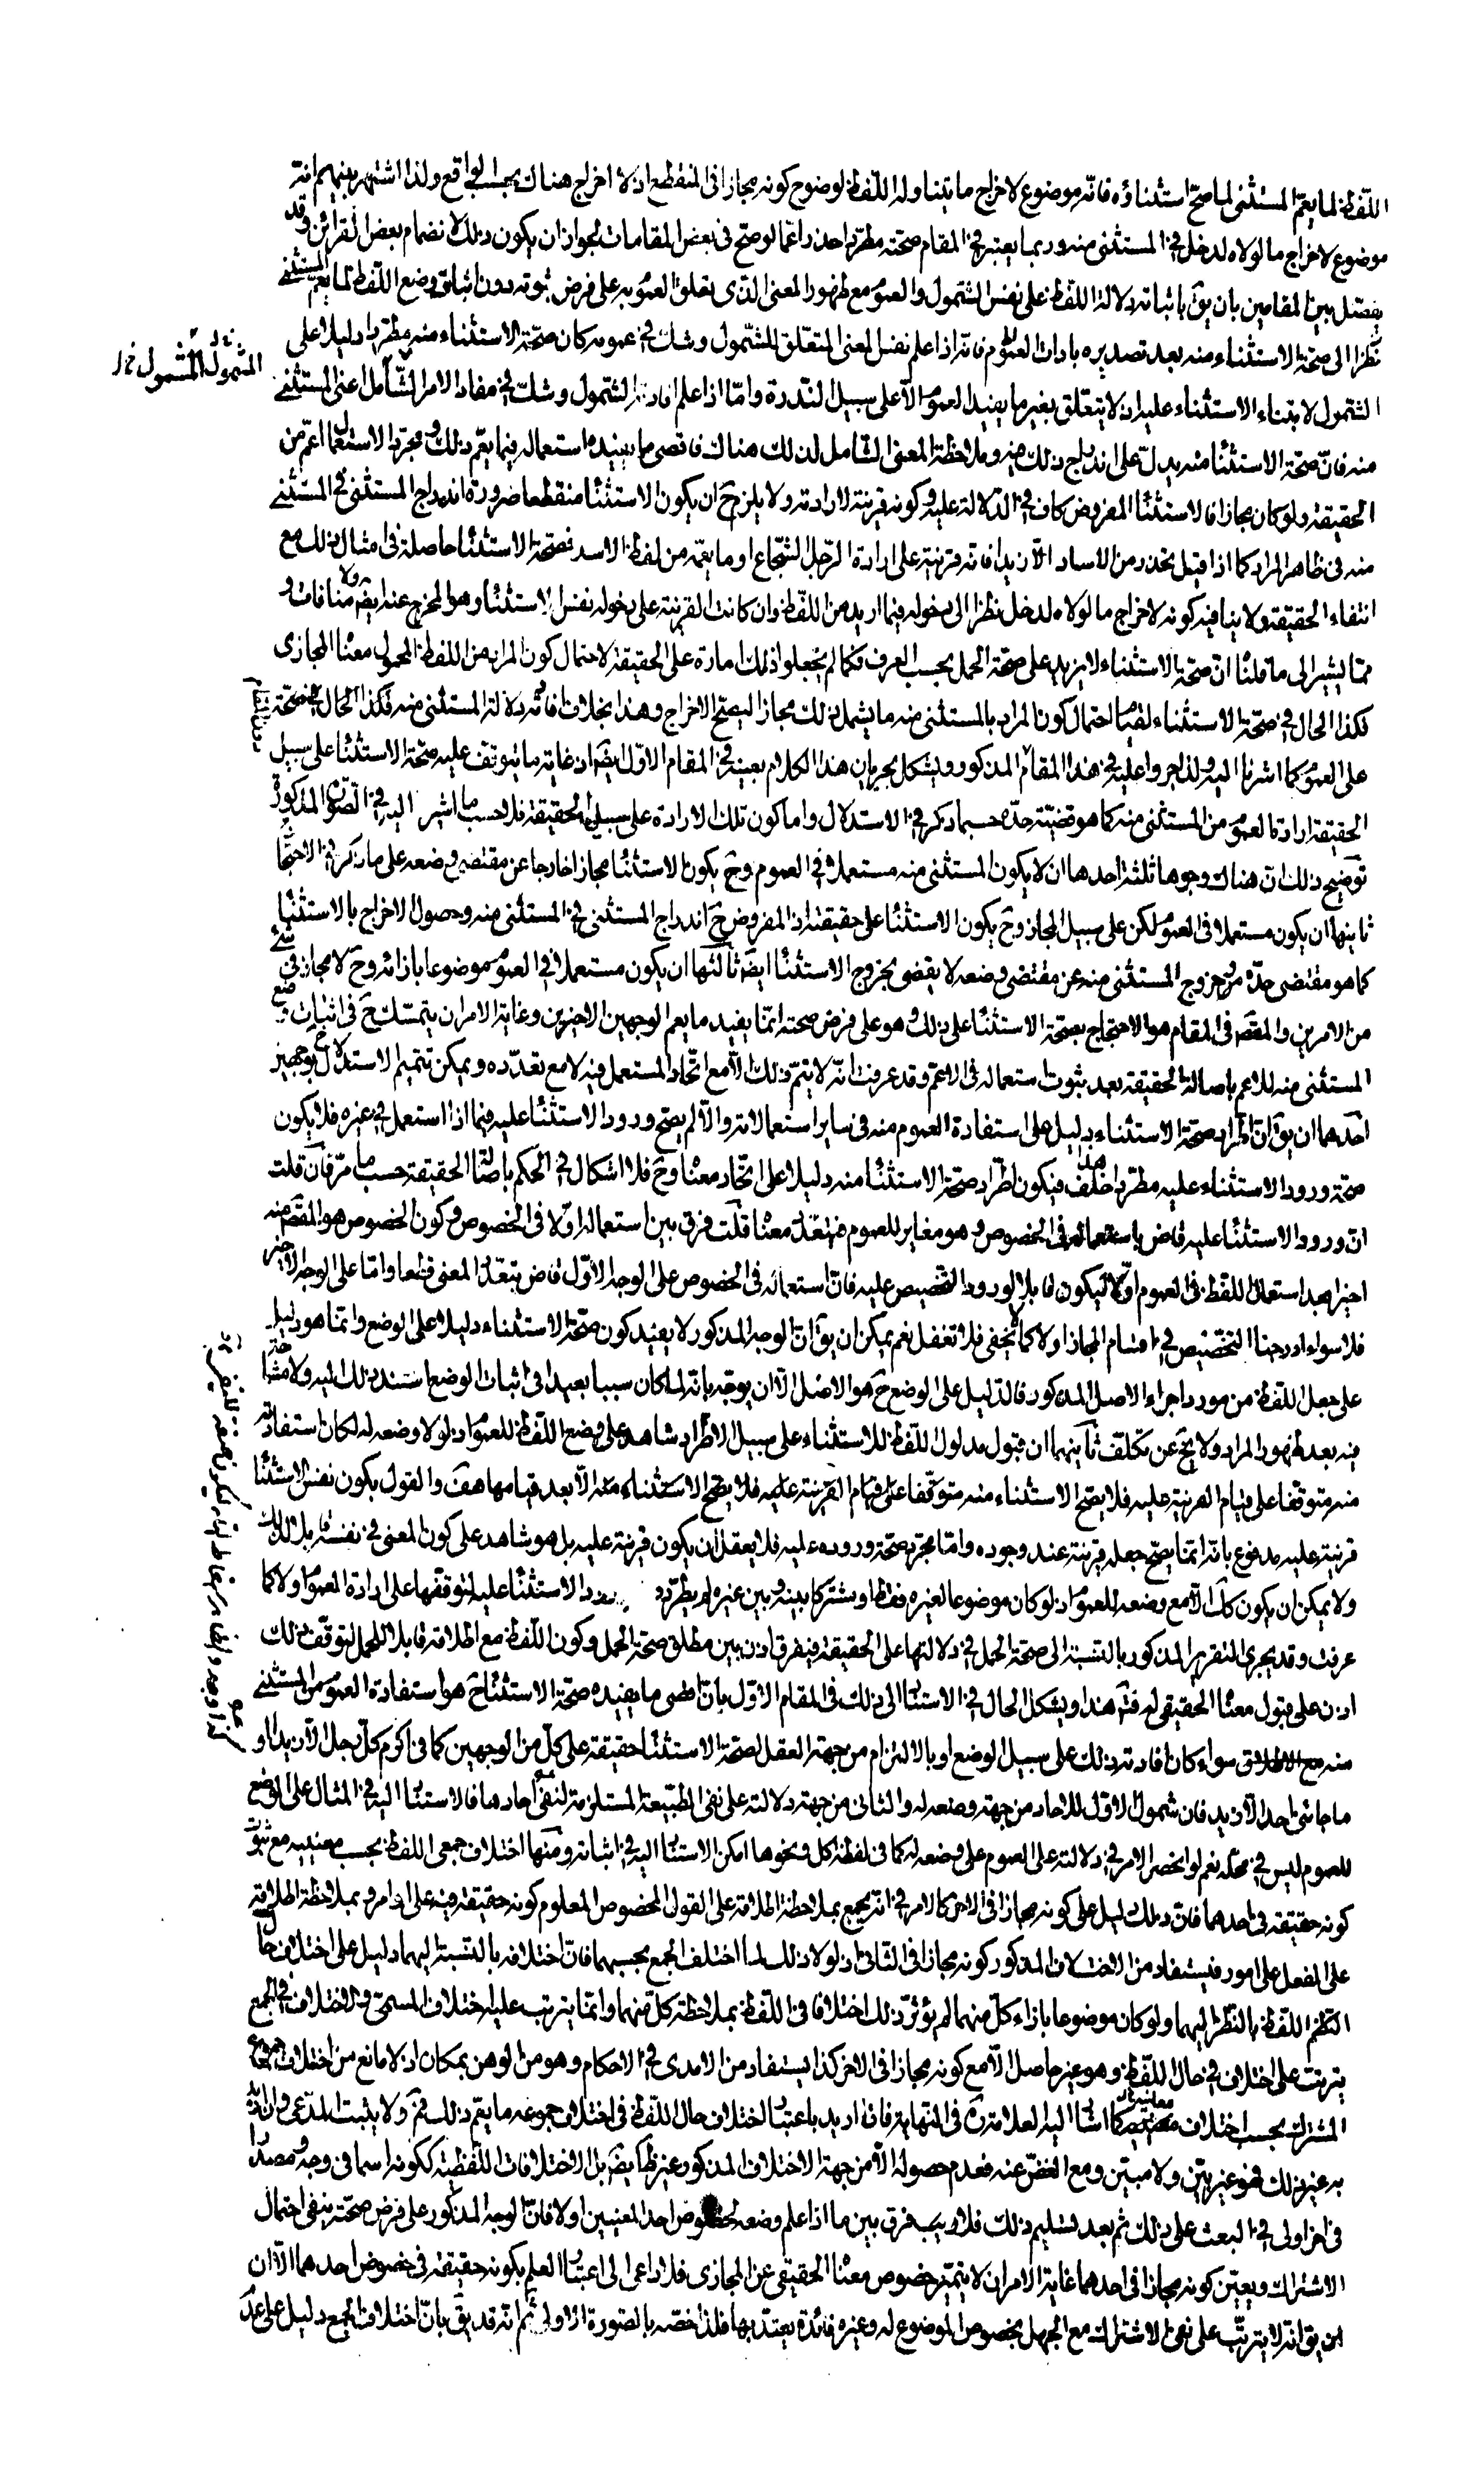 اللفظ لما يعمّ المستثنى لما صحّ استثناؤه فانّه موضوع لاخراج ما يتناوله اللفظ لوضوح كونه مجازا فى المنقطع اذ لا اخراج هناك بحسب الواقع ولذا اشتهر بينهم انّه
موضوع لاخراج ما لولاه لدخل فى المستثنى منه وربما يعتبر فى المقام صحّته مطّردا حذرا عمّا لو صحّ فى بعض المقامات لجواز ان يكون ذلك لانضمام بعض القرائن وقد
يفصّل بين المقامين بان يقٓ باثباته دلالة اللفظ على نفس الشمول والعموم مع ظهور المعنى الذى تعلق العموم به على فرض ثبوته دون اثباته وضع اللفظ لما يعم المستثنى
نظرا الى صحّة الاستثناء منه بعد تصديره بادات العموم فانّه اذا علم نفس المعنى المتعلّق للشمول وشك فى عمومه كان صحّة الاستثناء منه مطّردا دليلا على
الشمول لابتناء الاستثناء عليه اذ لا يتعلق بغير ما يفيد العموم الّا على سبيل الندرة وامّا اذا علم افادته الشمول وشك فى مفاد الامر الشامل اعنى المستثنى
منه فانّ صحّة الاستثناء منه يدلّ على اندراج ذلك فيه وملاحظة المعنى الشامل لذلك هناك فاقصى ما يفيد استعماله فيما يعمّ ذلك ومجرّد الاستعمال اعمّ من
الحقيقة ولو كان مجازا فالاستثناء المفروض كاف فى الدلالة عليه وكونه قرينة لارادته ولا يلزم حٓ ان يكون الاستثناء منقطعا ضرورة اندراج المستثنى فى المستثنى
منه فى ظاهر المراد كما اذا قيل تحذر من الاساد الّا زيدا فانّه قرينة على ارادة الرّجل الشجاع او ما يعمّه من لفظ الاسد فصحّة الاستثناء حاصلة فى امثال ذلك مع
انتفاء الحقيقة ولا ينافيه كونه لاخراج ما لولاه لدخل نظرا الى دخوله فيما اريد من اللفظ وان كانت القرينة على دخوله نفس الاستثناء وهو المخرج عنه ايضٓ ولا منافات و
ممّا يشير الى ما قلنا انّ صحّة الاستثناء لا يزيد على صحّة الحمل بحسب العرف فكما لم يجعلوا ذلك امارة على الحقيقة لاحتمال كون المراد من اللفظ المحمول معناه المجازى
فكذا الحال فى صحّة الاستثناء لقيام احتمال كون المراد بالمستثنى منه ما يشمل ذلك مجازا ليصح الاخراج وهذا بخلاف افادته دلالة المستثنى منه فكذا الحال فى صحّة
على العموم كما اشرنا اليه ولذا جروا عليه فى هذا المقام المذكور ويشكل بجريان هذا الكلام بعينه فى المقام الاوّل ايضٓ اذ غاية ما يتوقف عليه صحّة الاستثناء على سبيل
الحقيقة ارادة العموم من المستثنى منه كما هو قضيّة حدّه حسبما ذكر فى الاستدلال واما كون تلك الارادة على سبيل الحقيقة فلا حسب ما اشير اليه فى الصّورة المذكورة
توضيح ذلك انّ هناك وجوها ثلثة احدها ان لا يكون المستثنى منه مستعملا فى العموم وحٓ يكون الاستثناء مجازا خارجا عن مقتضى وضعه على ما ذكر فى الاحتجاج
ثانيها ان يكون مستعملا فى العموم لكن على سبيل المجاز وحٓ يكون الاستثناء على حقيقته اذ المفروض حٓ اندراج المستثنى فى المستثنى منه وحصول الاخراج بالاستثناء
كما هو مقتضى حدّه وخروج المستثنى منه عن مقتضى وضعه لا يقضى بخروج الاستثناء ايضٓ ثالثها ان يكون مستعملا فى العموم موضوعا بازائه وحٓ لا مجاز فى شئ
من الامرين والمقصٓ فى المقام هو الاحتجاج بصحّة الاستثناء على ذلك وهو على فرض صحته انّما يفيد ما يعم الوجهين الاخيرين وغاية الامر ان يتمسّك حٓ فى اثبات وضع
المستثنى منه للاعم باصالة الحقيقة بعد ثبوت استعماله فى الاعمّ وقد عرفت انّه لا يتمّ ذلك الّا مع اتّحاد المستعمل فيه لا مع تعدّده ويمكن تتميم الاستدلال حٓ بوجهين
احدهما ان يقٓ انّ المراد صحّة الاستثناء بدليل على استفادة العموم منه فى ساير استعمالاته والّا لم يصحّ ورود الاستثناء عليه فيما اذا استعمل فى غيره فلا يكون
صحّة ورود الاستثناء عليه مطّردا هذا خلف فيكون اطّراد صحّة الاستثناء منه دليلا على اتّحاد معناه وحٓ فلا اشكال فى الحكم باصالة الحقيقة حسب ما مرّ فان قلت
انّ ورود الاستثناء عليه قاض باستعماله فى الخصوص وهو مغاير للعموم فتعدّد معناه قلت فرق بين استعماله اوّلا فى الخصوص وكون الخصوص هو المقصٓ منه
اخيرا بعد استعمال اللفظ فى العموم اوّلا ليكون قابلا لورود التخصيص عليه فانّ استعماله فى الخصوص على الوجه الاوّل قاض بتعدّد المعنى قطعا وامّا على الوجه الاخير
فلا سواء ادرجنا التخصيص فى اقسام المجاز اولا كما لا يخفى فلا تغفل نعم يمكن ان يقٓ انّ الوجه المذكور لا يفيد كون صحّة الاستثناء دليلا على الوضع وانّما هو دليل
على جعل اللفظ من مورد اجراء الاصل المذكور فالدليل على الوضع حٓ هو الاصل الّا ان يوجّه بانّه لما كان سببا بعيدا فى اثبات الوضع استند ذلك اليه ولا مشاحّة
فيه بعد ظهور المراد ولا يخٓ عن تكلّف ثانيهما ان قبول مدلول اللفظ للاستثناء على سبيل الاطّراد شاهد على وضع اللفظ للعموم اذ لولا وضعه له لكان استفادته
منه متوقفا على قيام القرينة عليه فلا يصحّ الاستثناء منه متوقّفا على قيام القرينة عليه فلا يصحّ الاستثناء منه الّا بعد قيامها هف والقول بكون نفس الاستثناء
قرينة عليه مدفوع بانّه انّما يصحّ جعله قرينة عند وجوده وامّا مجرّد صحّة وروده عليه فلا يعقل ان يكون قرينة عليه بل هو شاهد على كون المعنى فى نفسه قابلا لذلك
ولا يمكن ان يكون كذلك الّا مع وضعه للعموم اذ لو كان موضوعا لغيره فقط او مشتركا بينه وبين غيره لم يطّرد ورود الاستثناء عليه لتوقّفها على ارادة العموم اولا كما
عرفت وقد يجرى التقرير المذكور بالنسبة الى صحّة الحمل فى دلالتها على الحقيقة فيفرق اذن بين مطلق صحّة الحمل وكون اللفظ مع اطلاقه قابلا للحمل لتوقّف ذلك
اذن على قبول معناه الحقيقى له فتم هذا ويشكل الحال فى الاستناد الى ذلك فى المقام الاوّل بانّ اقصى ما يفيده صحّة الاستثناء حٓ هو استفادة العموم من المستثنى
منه مع الاطلاق سواء كان افادته ذلك على سبيل الوضع او بالالتزام من جهة العقل لصحّة الاستثناء حقيقة على كلّ من الوجهين كما فى اكرم كلّ رجل الّا زيدا و
ما جائنى احد الّا زيد فان شمول الاوّل للاحاد من جهة وضعه له والثانى من جهة دلالته على نفى الطبيعة المستلزمة لنفى احادها فالاستناد اليه فى المثال على الوضع
للعموم ليس فى محلّه نعم لو انحصر الامر فى دلالته على العموم على وضعه له كما فى لفظة كل ونحوها امكن الاستناد اليه فى اثباته ومنها اختلاف جمعى اللفظ بحسب معنييه مع ثبوت
كونه حقيقة فى احدهما فانّ ذلك دليل على كونه مجازا فى الاخر كالامر فى انّه يجمع بملاحظة اطلاقه على القول المخصوص المعلوم كونه حقيقة فيه على اوامر وبملاحظة اطلاقه
على الفعل على امور فيستفاد من الاختلاف المذكور كونه مجازا فى الثانى اذ لولا ذلك لما اختلف الجمع بحسبهما فانّ اختلافه بالنسبة اليهما دليل على اختلاف حال
اللفظ بالنظر اليهما ولو كان موضوعا بازاء كلّ منهما لم يؤثّر ذلك اختلافا فى اللفظ بملاحظة كلّ منهما وانّما يترتب عليه اختلاف المسمّى والاختلاف فى الجمع
يترتّب على اختلاف فى حال اللفظ وهو غير حاصل الّا مع كونه مجازا فى الاخر كذا يستفاد من الامدى فى الاحكام وهو من الوهن بمكان اذ لا مانع من اختلاف جموع
المشترك بحسب اختلاف معانيه كما اشار اليه العلامة رهٓ فى النهاية فان اريد باعتبار اختلاف حال اللفظ فى اختلاف جموعه ما يعمّ ذلك فمٓ ولا يثبت المدّعى وان اريد
به غير ذلك فهو غير بيّن ولا مبيّن ومع الغضّ عنه فعدم حصوله الّا من جهة الاختلاف المذكور غير ظٓ ايضٓ بل الاختلافات اللفظيّة ككونه اسما فى وجه ومصدرا
فى اخر اولى فى البعث على ذلك ثم بعد تسليم ذلك فلا يجب فرق بين ما اذا علم وضعه لخصوص احد المعنيين اولا فانّ الوجه المذكور على فرض صحّته ينفى احتمال
الاشتراك ويعيّن كونه مجازا فى احدهما غاية الامر ان لا يتميّز خصوص معناه الحقيقى عن المجازى فلا داعى الى اعتبار العلم بكونه حقيقة فى خصوص احدهما الّا ان
ان يقٓ انّه لا يترتّب على نفى الاشتراك مع الجهل بخصوص الموضوع له وغيره فائدة يعتدّ بها فلذا خصّه بالصّورة الاولى ثم انّه قد يقٓ بانّ اختلاف الجمع دليل على عدم